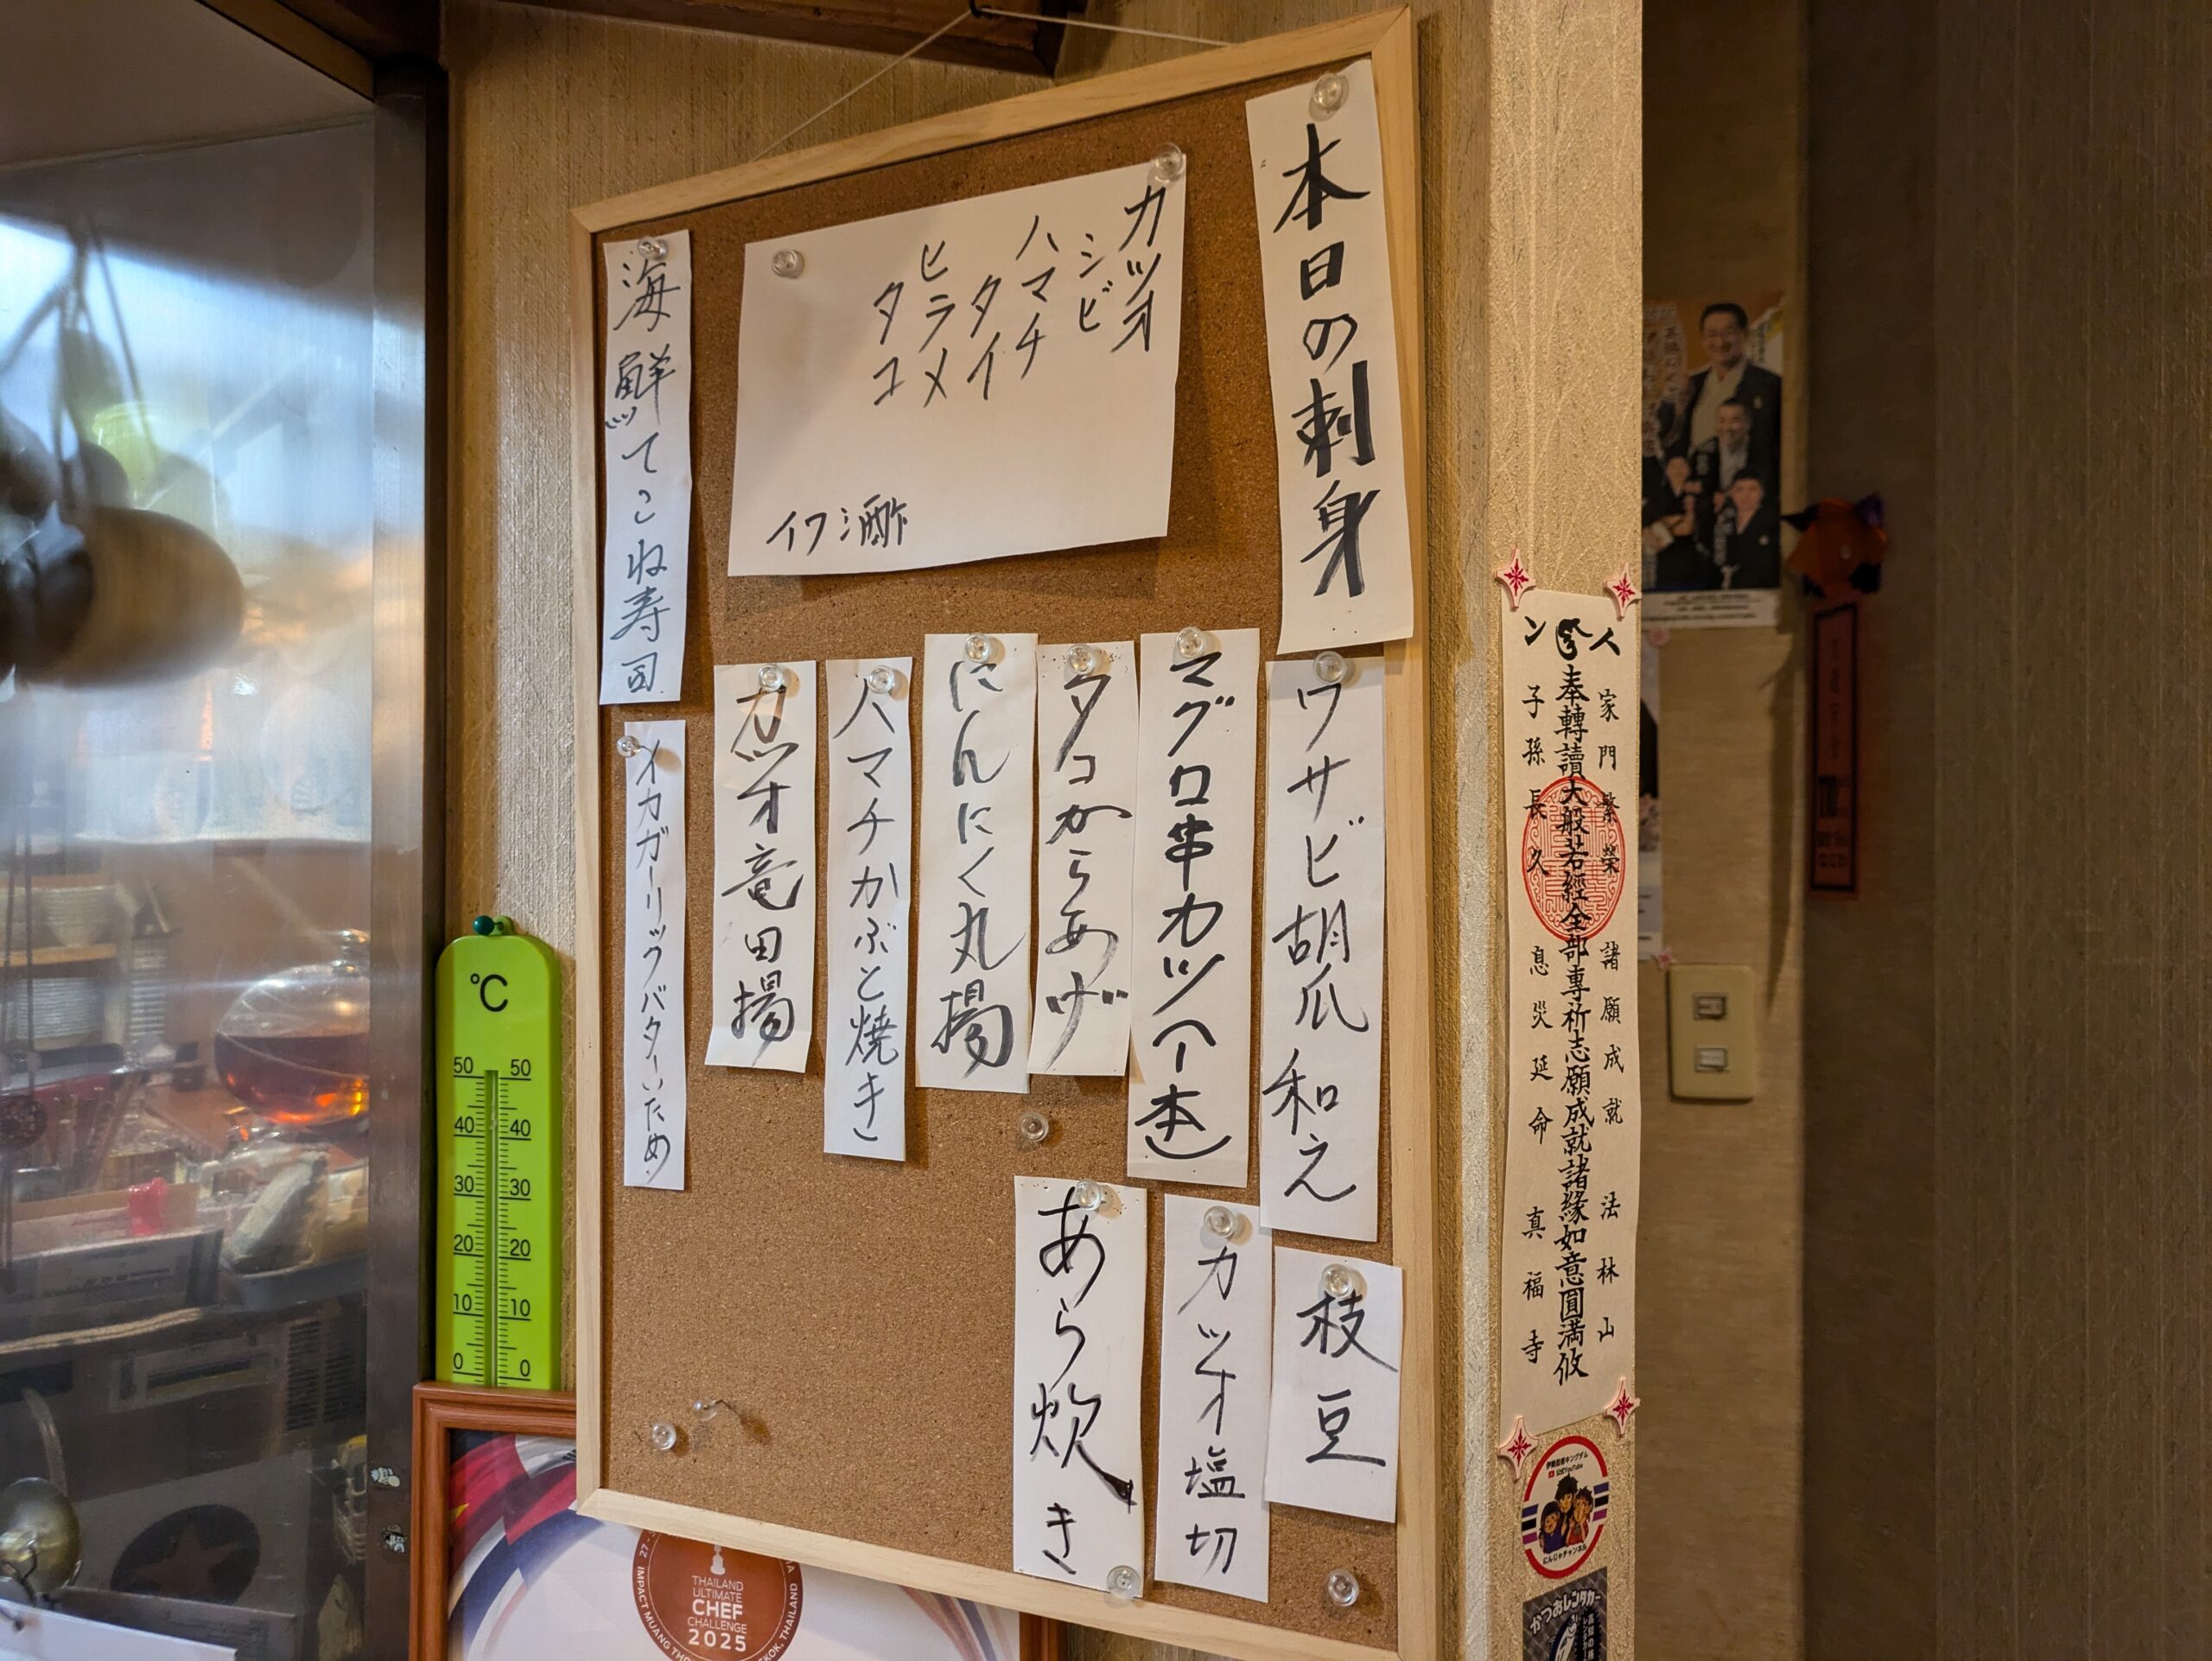 本日の刺身
カツオ
シビ
ハマチ
タイ
ヒラメ
タコ
イワシ酢
海鮮てこね寿司
ワサビ胡瓜和え
マグロ串カツ(一本)
タコからあげ
にんにく丸揚
ハマチかぶと焼き
カツオ竜田揚
イカガーリックバターいため
枝豆
カツオ塩切
あら炊き
家門繁榮 諸願成就 法林山
奉轉讀大般若經全部專祈志願成就諸緣如意圓満攸
子孫長久 息災延命 真福寺
℃
50 50
40 40
30 30
20 20
10 10
0 0
THAILAND
ULTIMATE
CHEF
CHALLENGE
2025
にんじゃチャンネル
かつおレンタカー